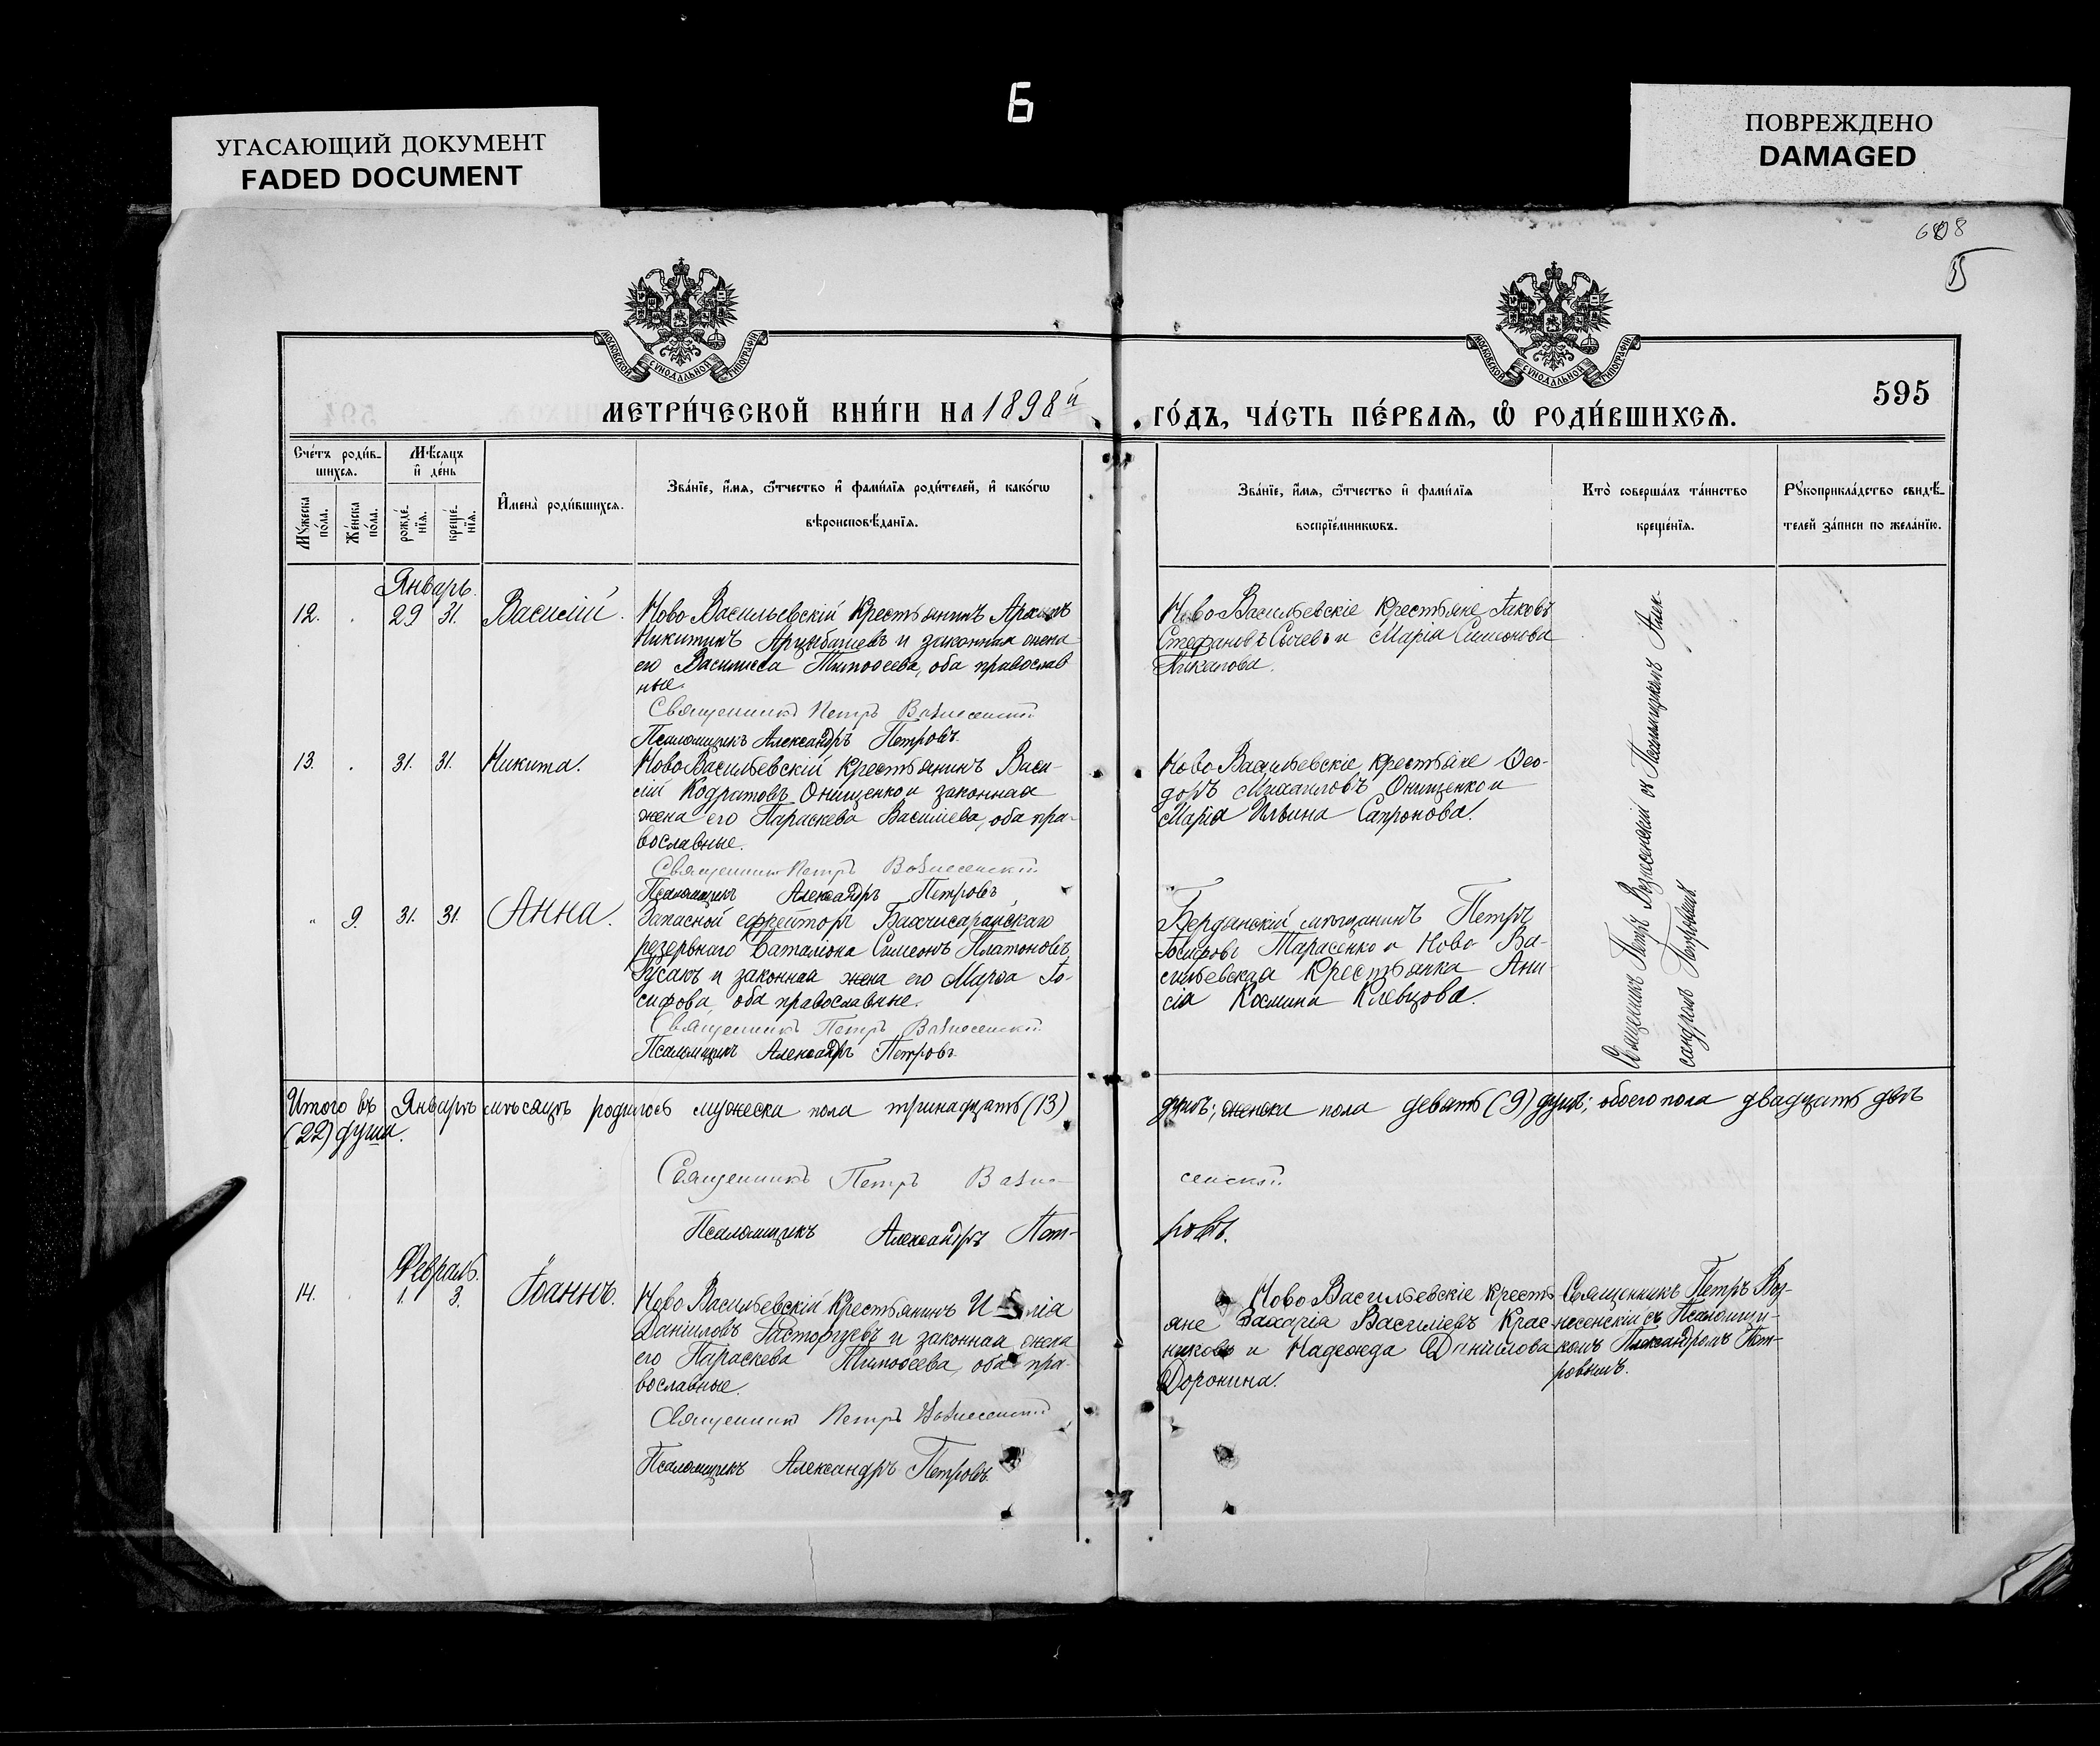 Б
УГАСАЮЩИЙ ДОКУМЕНТ
FADED DOCUMENT
ПОВРЕЖДЕНО
DAMAGED
МОСКОВСКОЙ СУНОДАЛЬНОЙ ТИПОГРАФІИ
МОСКОВСКОЙ СУНОДАЛЬНОЙ ТИПОГРАФІИ
595
МЕТРИ́ЧЕСКОЙ КНИ́ГИ НА 1898й
ГО́ДЪ, ЧА́СТЬ ПЕ́РВАЯ, Ѡ РОДИ́ВШИХСЯ.
Сче́тъ роди́в-
шихся.
Мѣ́сяцъ
и де́нь
Мꙋ́жеска по́ла.
Же́нска по́ла.
рожде́-нїя.
креще́-нїя.
Имена̀ роди́вшихся.
Зва́нїе, и́мя, ѻ́тчество и фами́лїя роди́телей, и како́гѡ
вѣроисповѣ́данїя.
Зва́нїе, и́мя, ѻ́тчество и фами́лїя
воспрїе́мникѡвъ.
Кто̀ соверша́лъ та́инство
креще́нїя.
Рꙋкоприкла́дство свидѣ́-
телей за́писи по жела́нїю.
Январь.
12. 29 31. Василій.
Ново Васильевскій крестьянинъ
Никитинъ Арцыбашевъ и законная жена
его Василиса Тимоѳеева, оба православ
ные.
Священникъ Петръ Вознесенскій
Псаломщикъ Александръ Петровъ.
Ново Васильевскіе крестьяне Іаковъ
Стефановъ Сычевъ и Марія Симонова
13. 31. 31. Никита.
Ново Васильевскій крестьянинъ Васи-
лій Кодратовъ Онищенко и законная
жена его Параскева Василіева, оба пра-
вославные.
Священникъ Петръ Вознесенскій
Псаломщикъ Александръ Петровъ
Ново Васильевскіе крестьяне Ѳео-
доръ Михаиловъ Онищенко и
Марія Ильина Сапронова.
" 9. 31. 31. Анна.
Запасной ефрейторъ Бахчисарайскаго
резервнаго баталіона Симеонъ Платоновъ
Русакъ и законная жена его Марѳа Іо-
сифова, оба православные.
Священникъ Петръ Вознесенскій
Псаломщикъ Александръ Петровъ
Бердянскій мѣщанинъ Петръ
Іосифовъ Тарасенко и Ново Ва-
сильевская крестьянка Ани-
сія Космина Клевцова.
Священникъ Петръ Вознесенскій съ Псаломщикомъ Алек-
сандромъ Петровымъ.
Итого въ Январѣ мѣсяцѣ родилось мужеска пола тринадцать (13)
душъ; женска пола девять (9) душъ; обоего пола двадцать двѣ
(22) души.
Священникъ Петръ Возне-
сенскій
Псаломщикъ Александръ Пет-
ровъ.
Февраль.
14. 1. 3. Іоаннъ.
Ново Васильевскій крестьянинъ
Даніиловъ Расторгуевъ и законная жена
его Параскева Тимоѳеева, оба пра-
вославные.
Священникъ Петръ Вознесенскій
Псаломщикъ Александръ Петровъ.
Ново Васильевскіе кресть
яне Захарія Василіевъ Крас-
никовъ и Надежда Даниилова
Доронина.
Священникъ Петръ Воз-
несенскій съ Псаломщи-
комъ Александромъ Пет-
ровымъ.